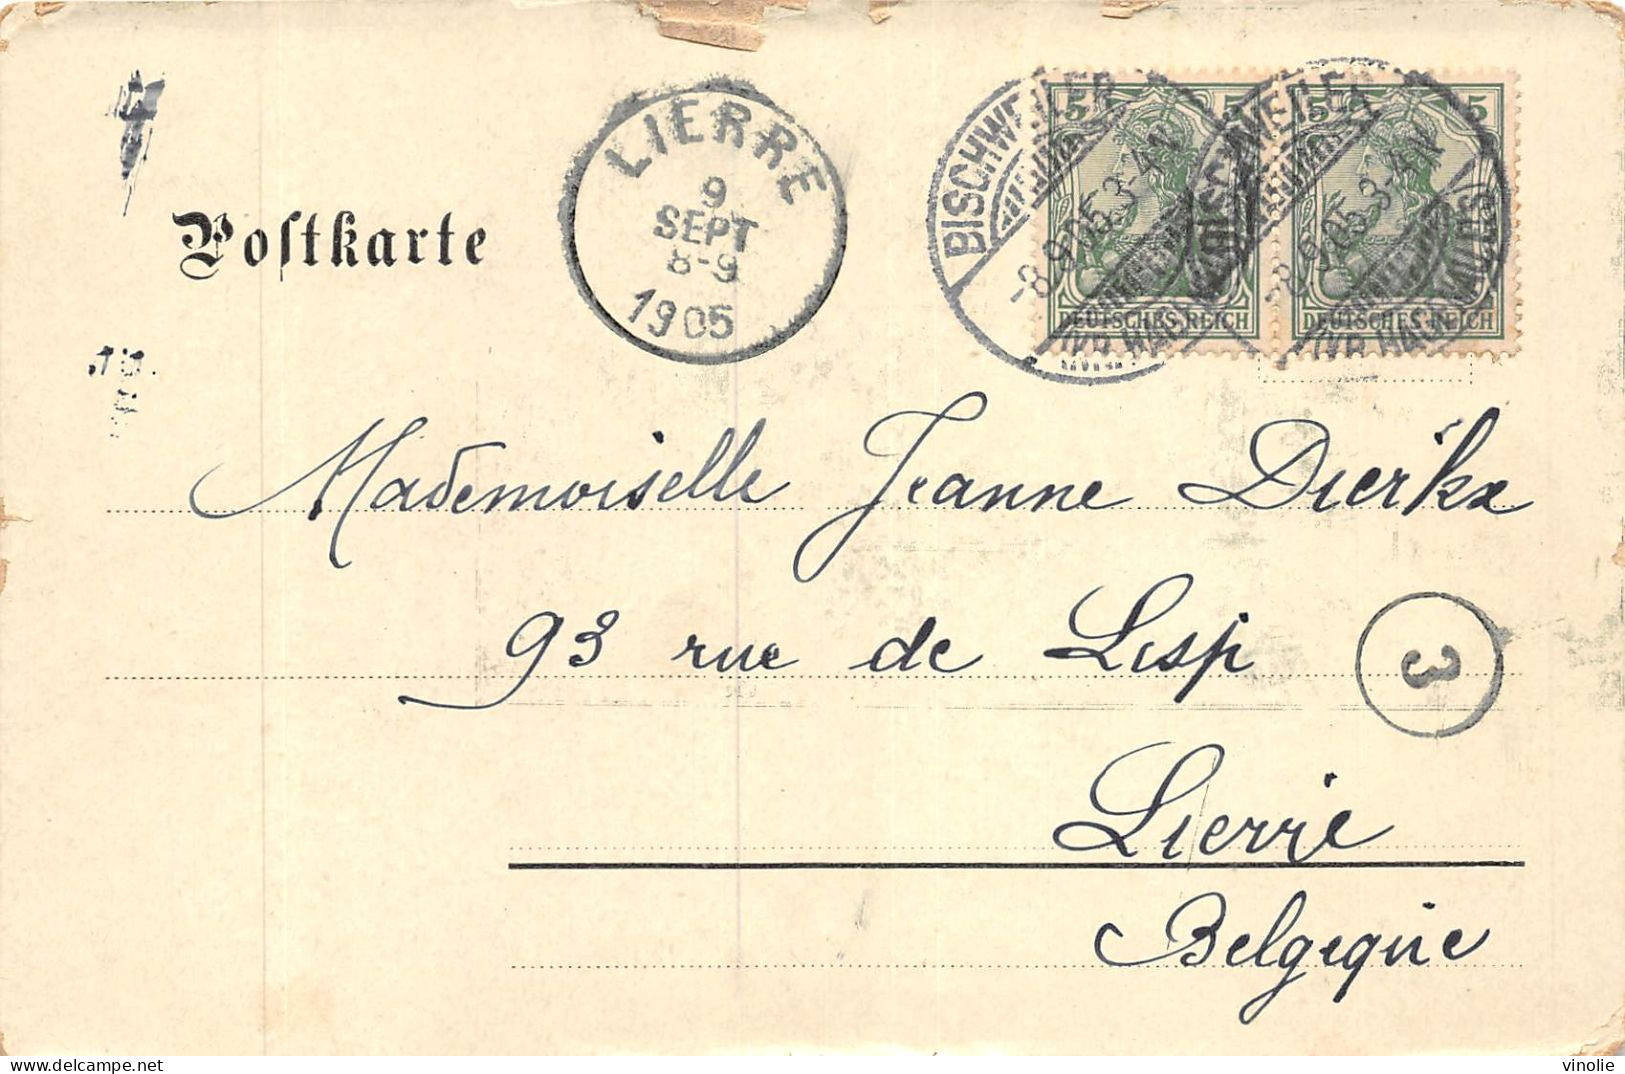 Postkarte
LIERRE
9
SEPT
8-9
1905
BISCHWEILER
-8.9.05.3-4N.
BISCHWEILER
-8.9.05.3-4N.
5 5
DEUTSCHES REICH
5 5
DEUTSCHES REICH
Mademoiselle Jeanne Dierkx
93 rue de Lisp
3
Lierre
Belgique
delcampe.net
vinolie